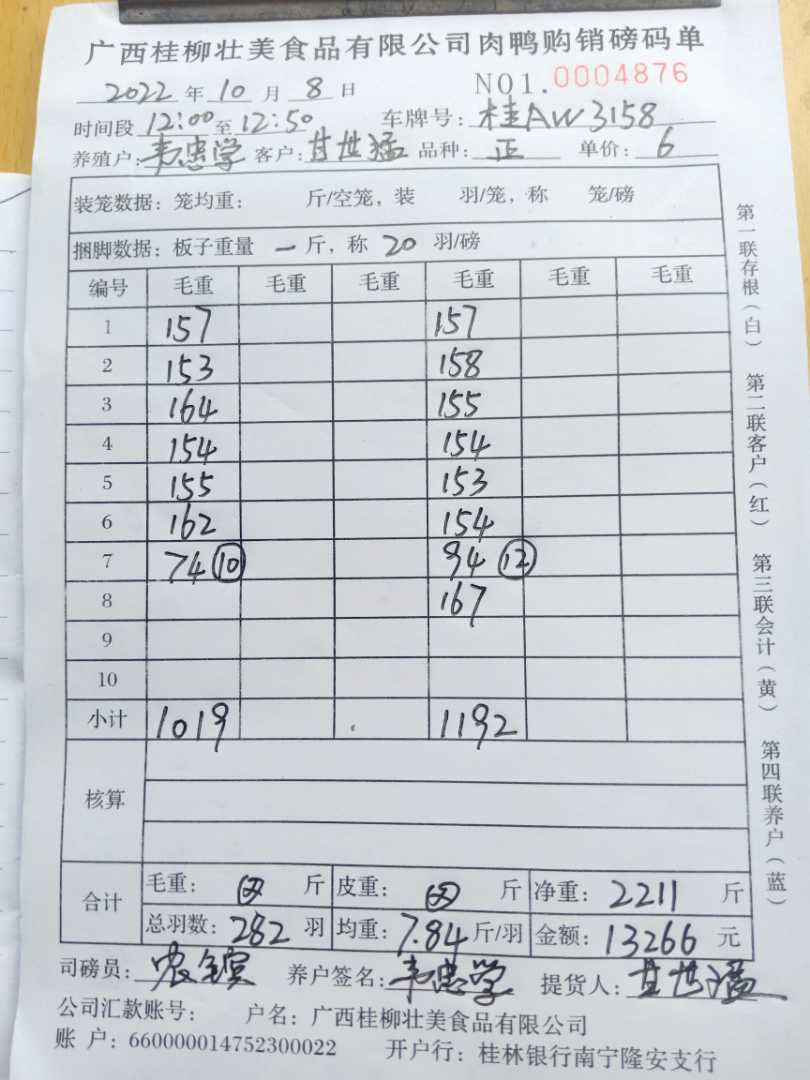 广西桂柳壮美食品有限公司肉鸭购销磅码单
2022 年 10 月 8 日 NO1.0004876
时间段 12:00 至 12:50 车牌号: 桂AW3158
养殖户: 韦忠学 客户: 甘世猛 品种: 正 单价: 6
装笼数据: 笼均重: 斤/空笼, 装 羽/笼, 称 笼/磅
捆脚数据: 板子重量 一 斤, 称 20 羽/磅
编号 毛重 毛重 毛重 毛重 毛重 毛重
1 157 157
2 153 158
3 164 155
4 154 154
5 155 153
6 162 154
7 74 ⑩ 94 ⑫
8 167
9
10
小计 1019 1192
核算
合计 毛重: 斤 皮重: 斤 净重: 2211 斤
总羽数: 282 羽 均重: 7.84 斤/羽 金额: 13266 元
司磅员: 养户签名: 韦忠学 提货人: 甘世猛
公司汇款账号: 户名: 广西桂柳壮美食品有限公司
账 户: 660000014752300022 开户行: 桂林银行南宁隆安支行
第一联存根(白) 第二联客户(红) 第三联会计(黄) 第四联养户(蓝)